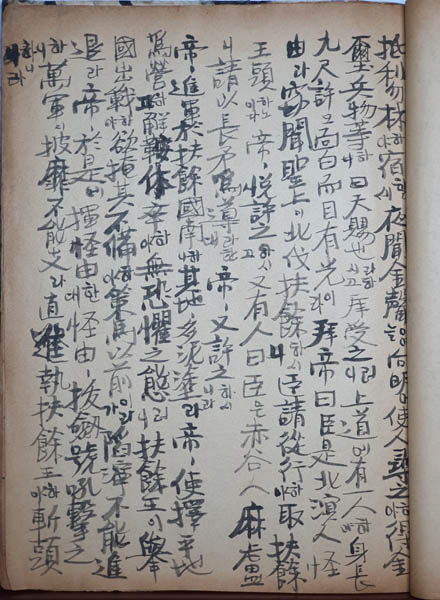 抵利勿林하야宿하시夜聞金聲向明使人尋之하야得金
璽兵物等하니曰天賜也라하시고拜受之러니上道에有一人하대身長
九尺許오面白而目有光이라拜帝曰臣是北溟人怪
由라窃聞聖上이北伐扶餘하시니臣請從行하야取扶餘
王頭하노이다帝ㅣ悅許之하시고又有人曰臣은赤谷人麻盧
니請以長矛爲導라한대帝ㅣ又許之하시니라
帝ㅣ進軍於扶餘國南하니其地ㅣ多泥塗라帝ㅣ使擇平地
爲營하고解鞍休卒하야無恐懼之態러니扶餘王이擧
國出戰하야欲掩其不備하야策馬以前이라가陷濘不能進
退라帝ㅣ於是에揮怪由한대怪由ㅣ拔劍號吼擊之
하니萬軍이披靡不能支라直進執扶餘王하야斬頭
하니라